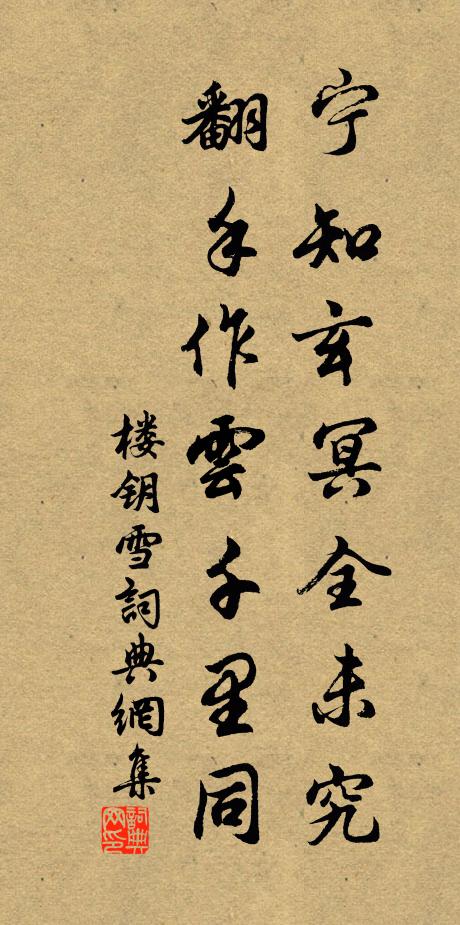 宁知玄冥全未究
翻手作雲千里同
楼钥雪詞典網集
詞典网印